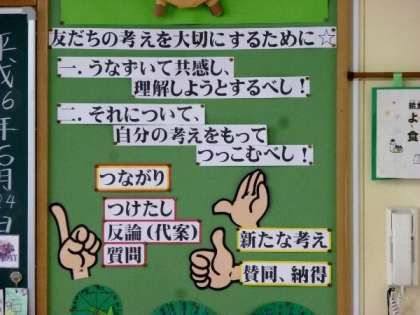 友だちの考えを大切にするために☆
一.うなずいて共感し、
理解しようとするべし!
二.それについて、
自分の考えをもって
つっこむべし!
つながり
つけたし
反論(代案)
質問
新たな考え
賛同、納得
平成
6年6月
4
日
よ・食